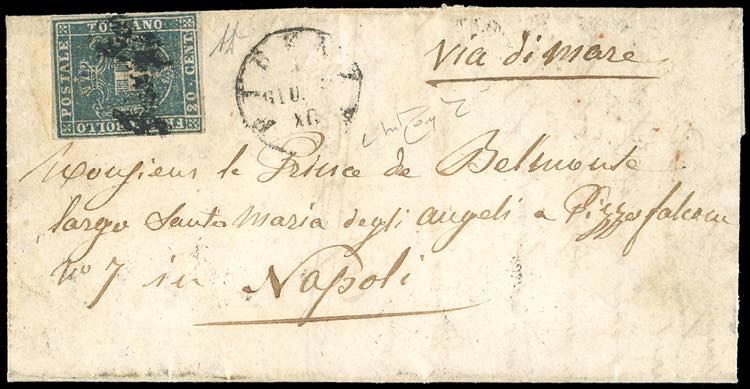 TOSCANO
POSTALE
20 CENT.
FRANCOBOLLO
GIU.
Via di mare
Monsieur le Prince de Belmonte
largo Santa Maria degli angeli a Pizzofalcone
No 7 in
Napoli